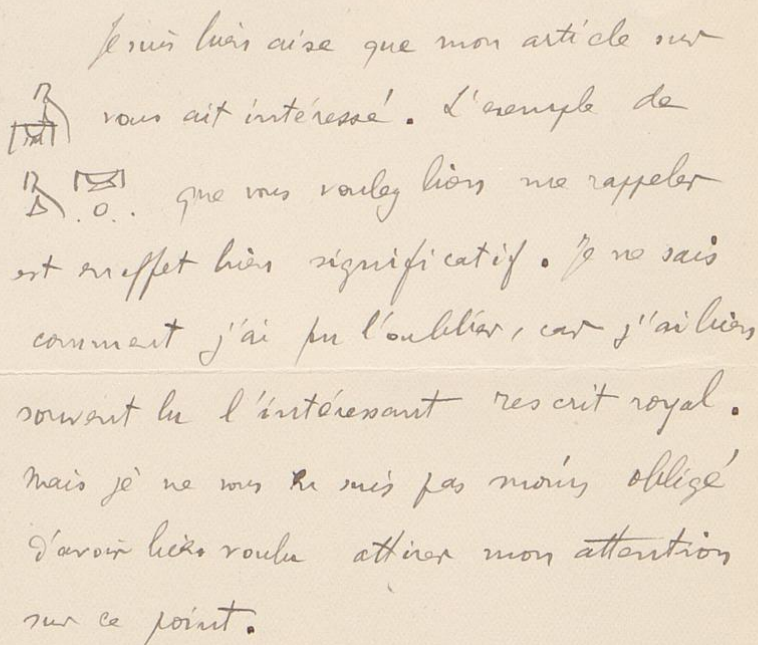 Je suis bien aise que mon article sur
vous ait intéressé. L'exemple de
que vous voulez bien me rappeler
est en effet bien significatif. Je ne sais
comment j'ai pu l'oublier, car j'ai bien
souvent lu l'intéressant rescrit royal.
Mais je ne vous en suis pas moins obligé
d'avoir bien voulu attirer mon attention
sur ce point.